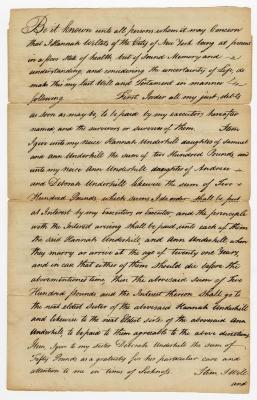 Be it known unto all persons whom it may Concern
that I Hannah of the City of New York being at present
in a poor state of health but of Sound Memory and
understanding, and considering the uncertainty of Life, do
make this my last Will and Testament in manner
following First I order all my just debts
as soon as may be, to be paid by my executors hereafter
named and the survivors or survivor of them Item
I give unto my Niece Hannah Underhill daughter of Samuel
and Ann Underhill the sum of two Hundred Pounds and
unto my Niece Ann Underhill daughter of Andrew
and Deborah Underhill likewise the sum of Two
Hundred Pounds which sums I do order Shall be put
at Interest by my Executors or Executor, and the principle
with the Interest arising Shall be paid unto each of them
the said Hannah Underhill and Ann Underhill when
they marry or arrive at the age of twenty one Years,
and in case that either of them Should die before the
abovementioned time, then the aforesaid sum of Two
Hundred pounds and the Interest thereon Shall go to
the next eldest Sister of the aforesaid Hannah Underhill
and likewise to the next Eldest sister of the aforesaid Ann
Underhill, to be paid to them agreeable to the above directions,
Item, I give to my Sister Deborah Underhill the sum of
Fifty Pounds as a gratuity for her particular care and
attention to me in times of Sickness. Item I Will
and